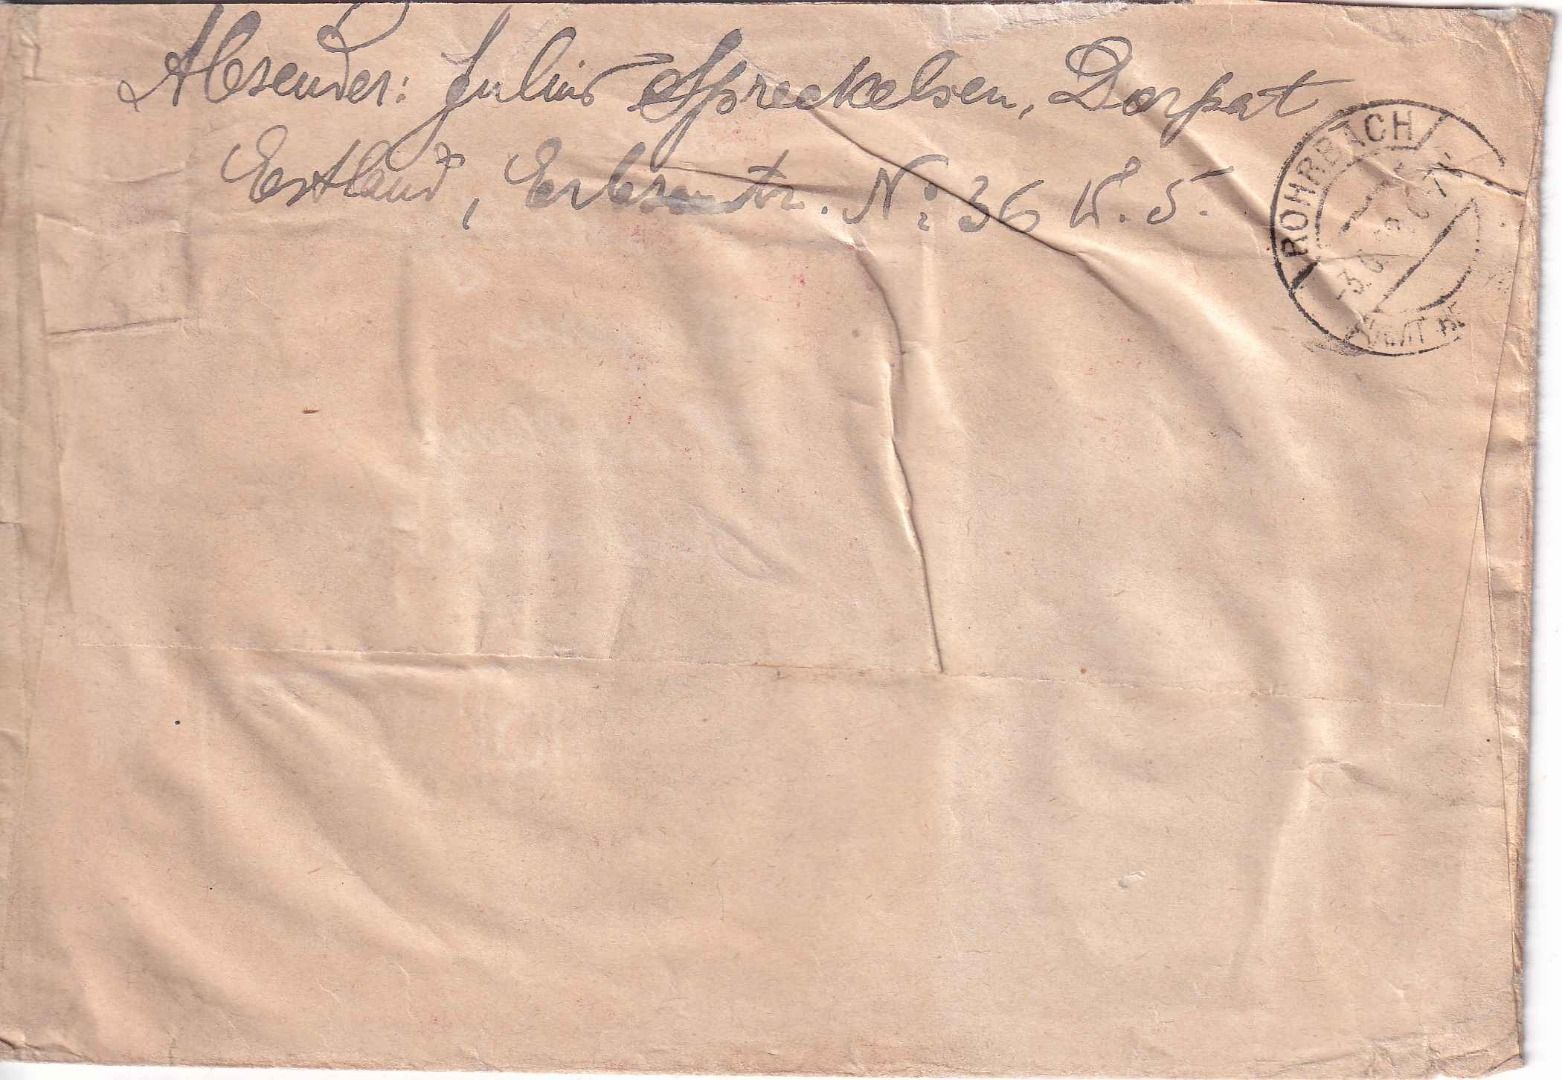 Absender: Julius Spreckelsen, Dorpat
Estland, Erbsenstr. No: 36 W. 5.
ROHRBACH